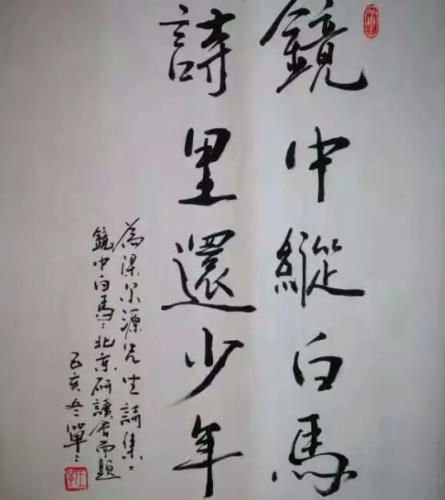 鏡中縱白馬
詩里還少年
為梁尔源先生詩集：
鏡中白馬：北京研讀會而題
己亥冬